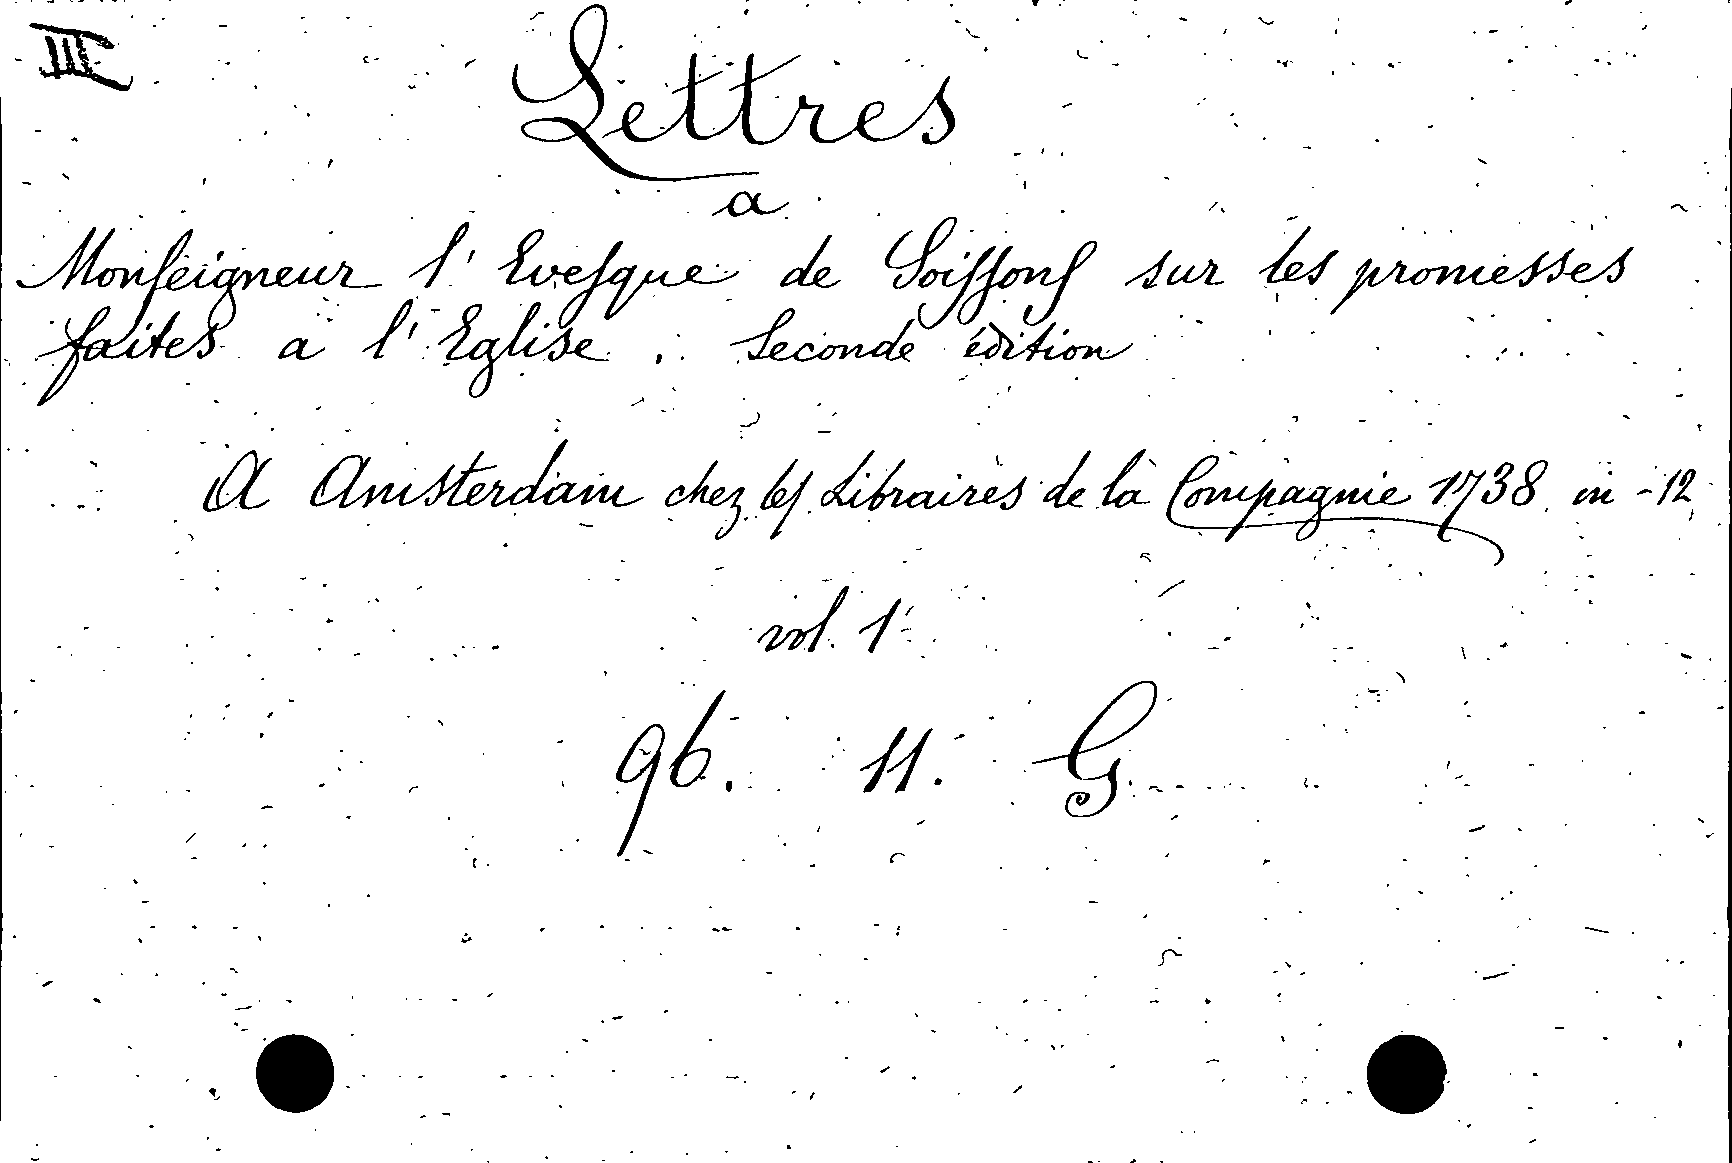 III
Lettres
a
Monſeigneur l'Eveſque de Soiſſonſ sur les promesses
faites a l'Eglise. Seconde édition
A Amsterdam chez leſ Libraires de la Compagnie 1738 in-12
vol. 1
96. 11. G